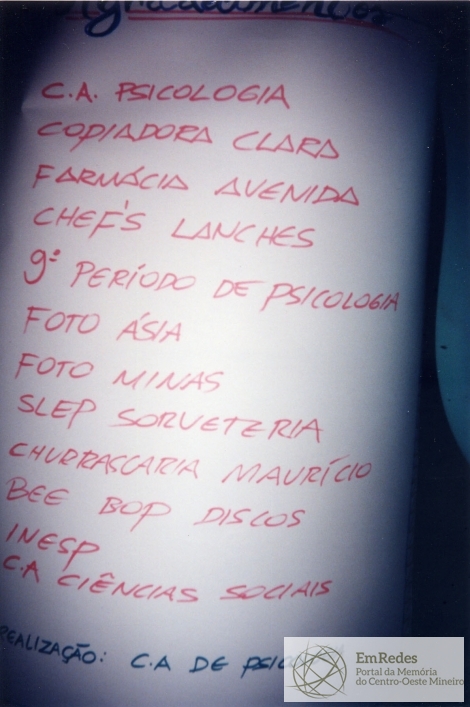 Agradecimentos
C.A. PSICOLOGIA
COPIADORA CLARA
FARMÁCIA AVENIDA
CHEF'S LANCHES
9º PERÍODO DE PSICOLOGIA
FOTO ÁSIA
FOTO MINAS
SLEP SORVETERIA
CHURRASCARIA MAURÍCIO
BEE BOP DISCOS
INESP
C.A CIÊNCIAS SOCIAIS
REALIZAÇÃO: C.A DE
EmRedes
Portal da Memória
do Centro-Oeste Mineiro